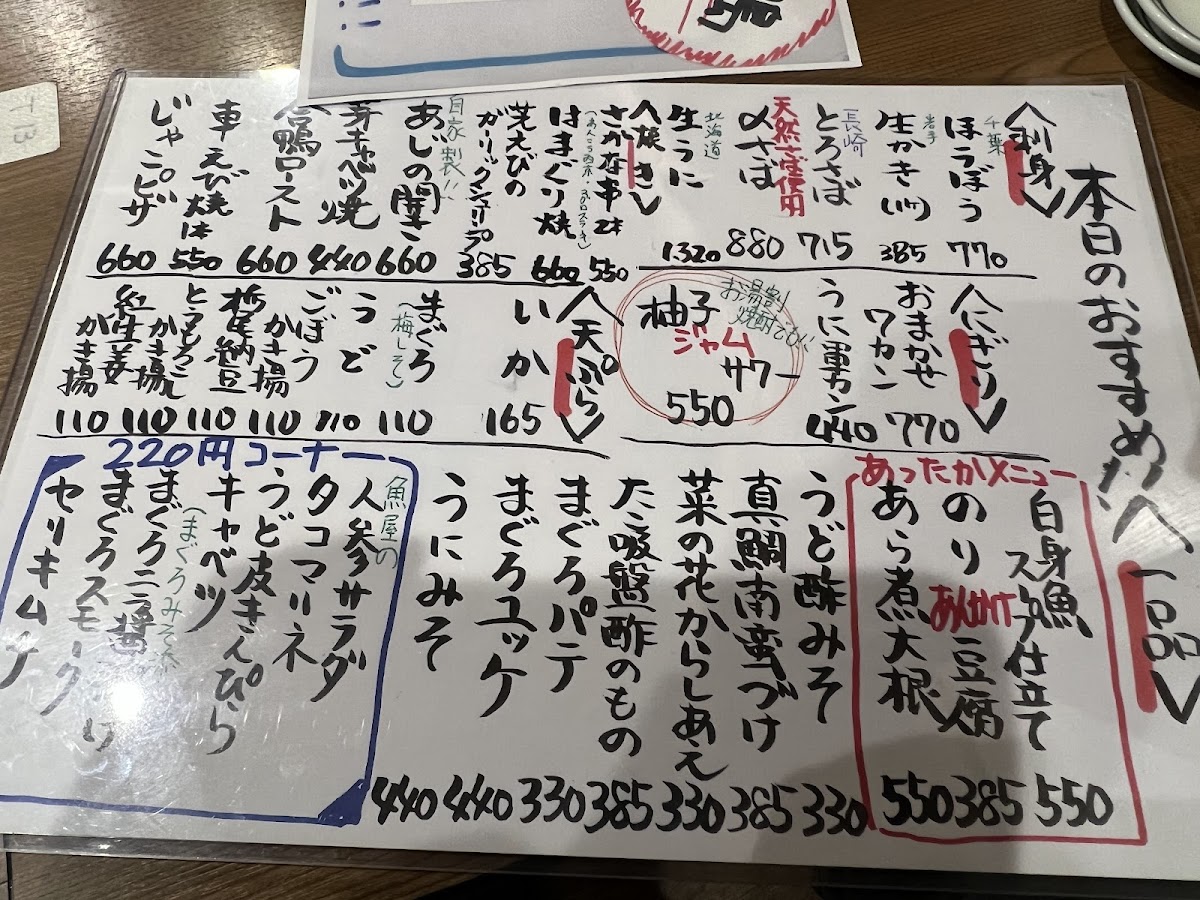 本日のおすすめ
〈刺身〉
千葉
ほうぼう 770
岩手
生かき 385
長崎
とろさば 715
天然さば使用
〆さば 880
北海道
生うに 1,320
〈焼き〉
さかな串 2本 550
はまぐり焼 660
芝えびの
ガーリックシュリンプ 385
自家製!!
あじの開き 660
芽キャベツ焼 440
合鴨ロースト 660
車えび焼 1本 550
じゃこピザ 660
〈にぎり〉
おまかせ
ワカン 770
うに軍カン 440
お湯割
焼酎でも!!
柚子
ジャム
サワー
550
〈天ぷら〉
いか 165
まぐろ
(梅しそ) 110
うど 110
ごぼう
かき揚 110
栃尾納豆 110
とうもろこし
かき揚 110
紅生姜
かき揚 110
〈一品〉
あったかメニュー
白身魚
スープ仕立て 550
のりあんかけ豆腐 385
あら煮大根 550
うど酢みそ 330
真鯛南蛮づけ 385
菜の花からしあえ 330
たこ吸盤酢のもの 385
まぐろパテ 330
まぐろユッケ 440
うにみそ 440
220円コーナー
魚屋の
人参サラダ
タコマリネ
うど皮きんぴら
キャベツ
(まぐろみそ添
まぐろニラ醤
まぐろスモーク
セリキムチ